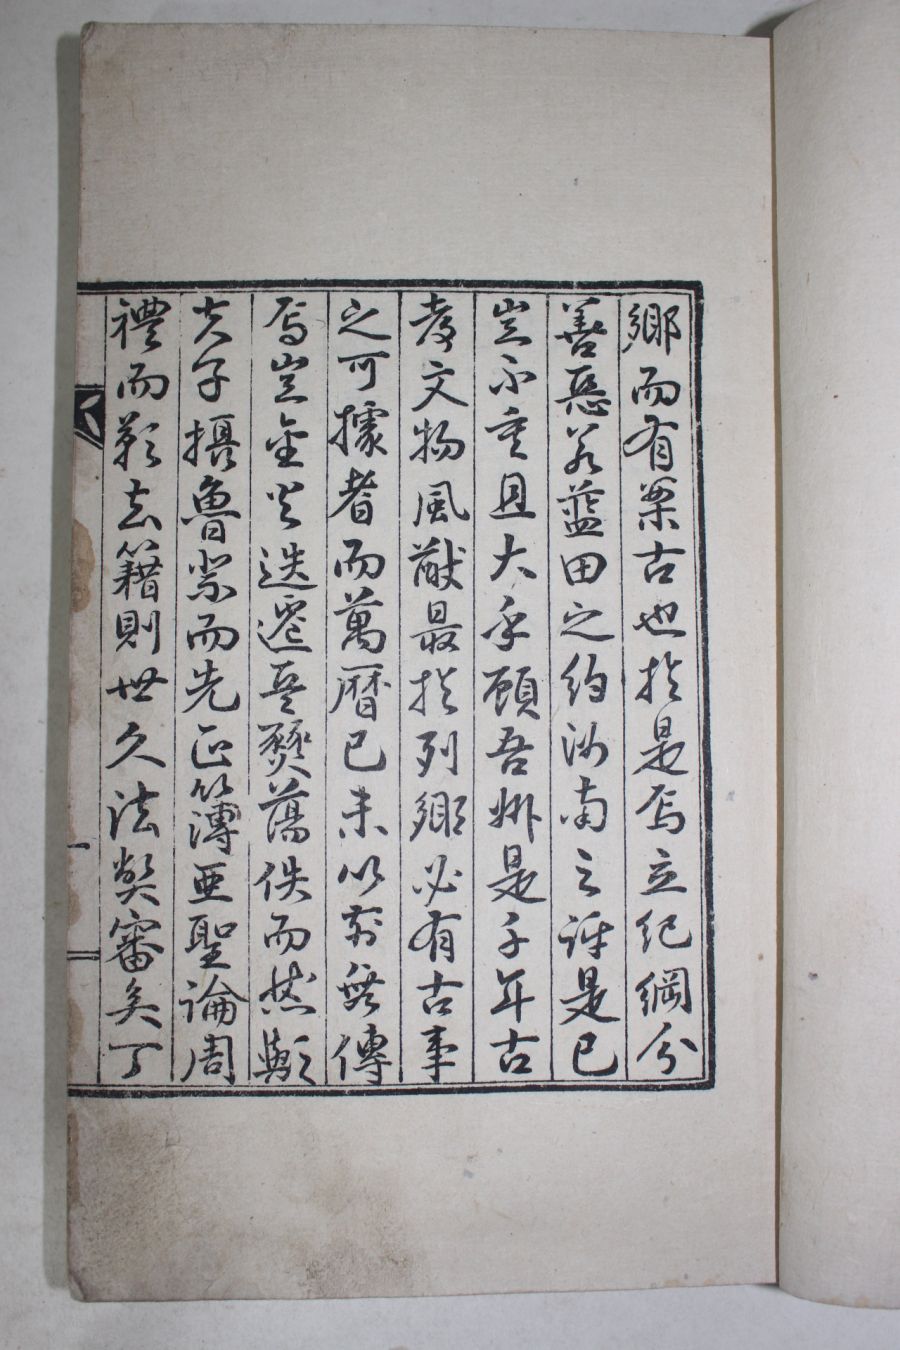 鄉而有案古也於是焉立紀綱分
善惡若藍田之約汝南之評是已
豈不重且大乎顧吾州是千年古
文物風猷最於列鄉必有古事
之可據者而萬曆已未以前無傳
焉豈金火迭遷兵燹蕩佚而然歟
夫子攝魯 而先正簿亞聖論周
禮而歎去籍則世久法弊審矣丁